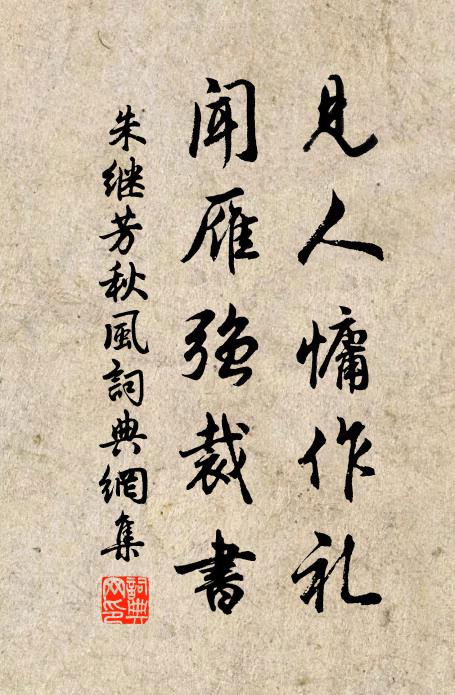 見人慵作礼
聞雁强裁書
朱继芳秋風詞典網集
詞典網印